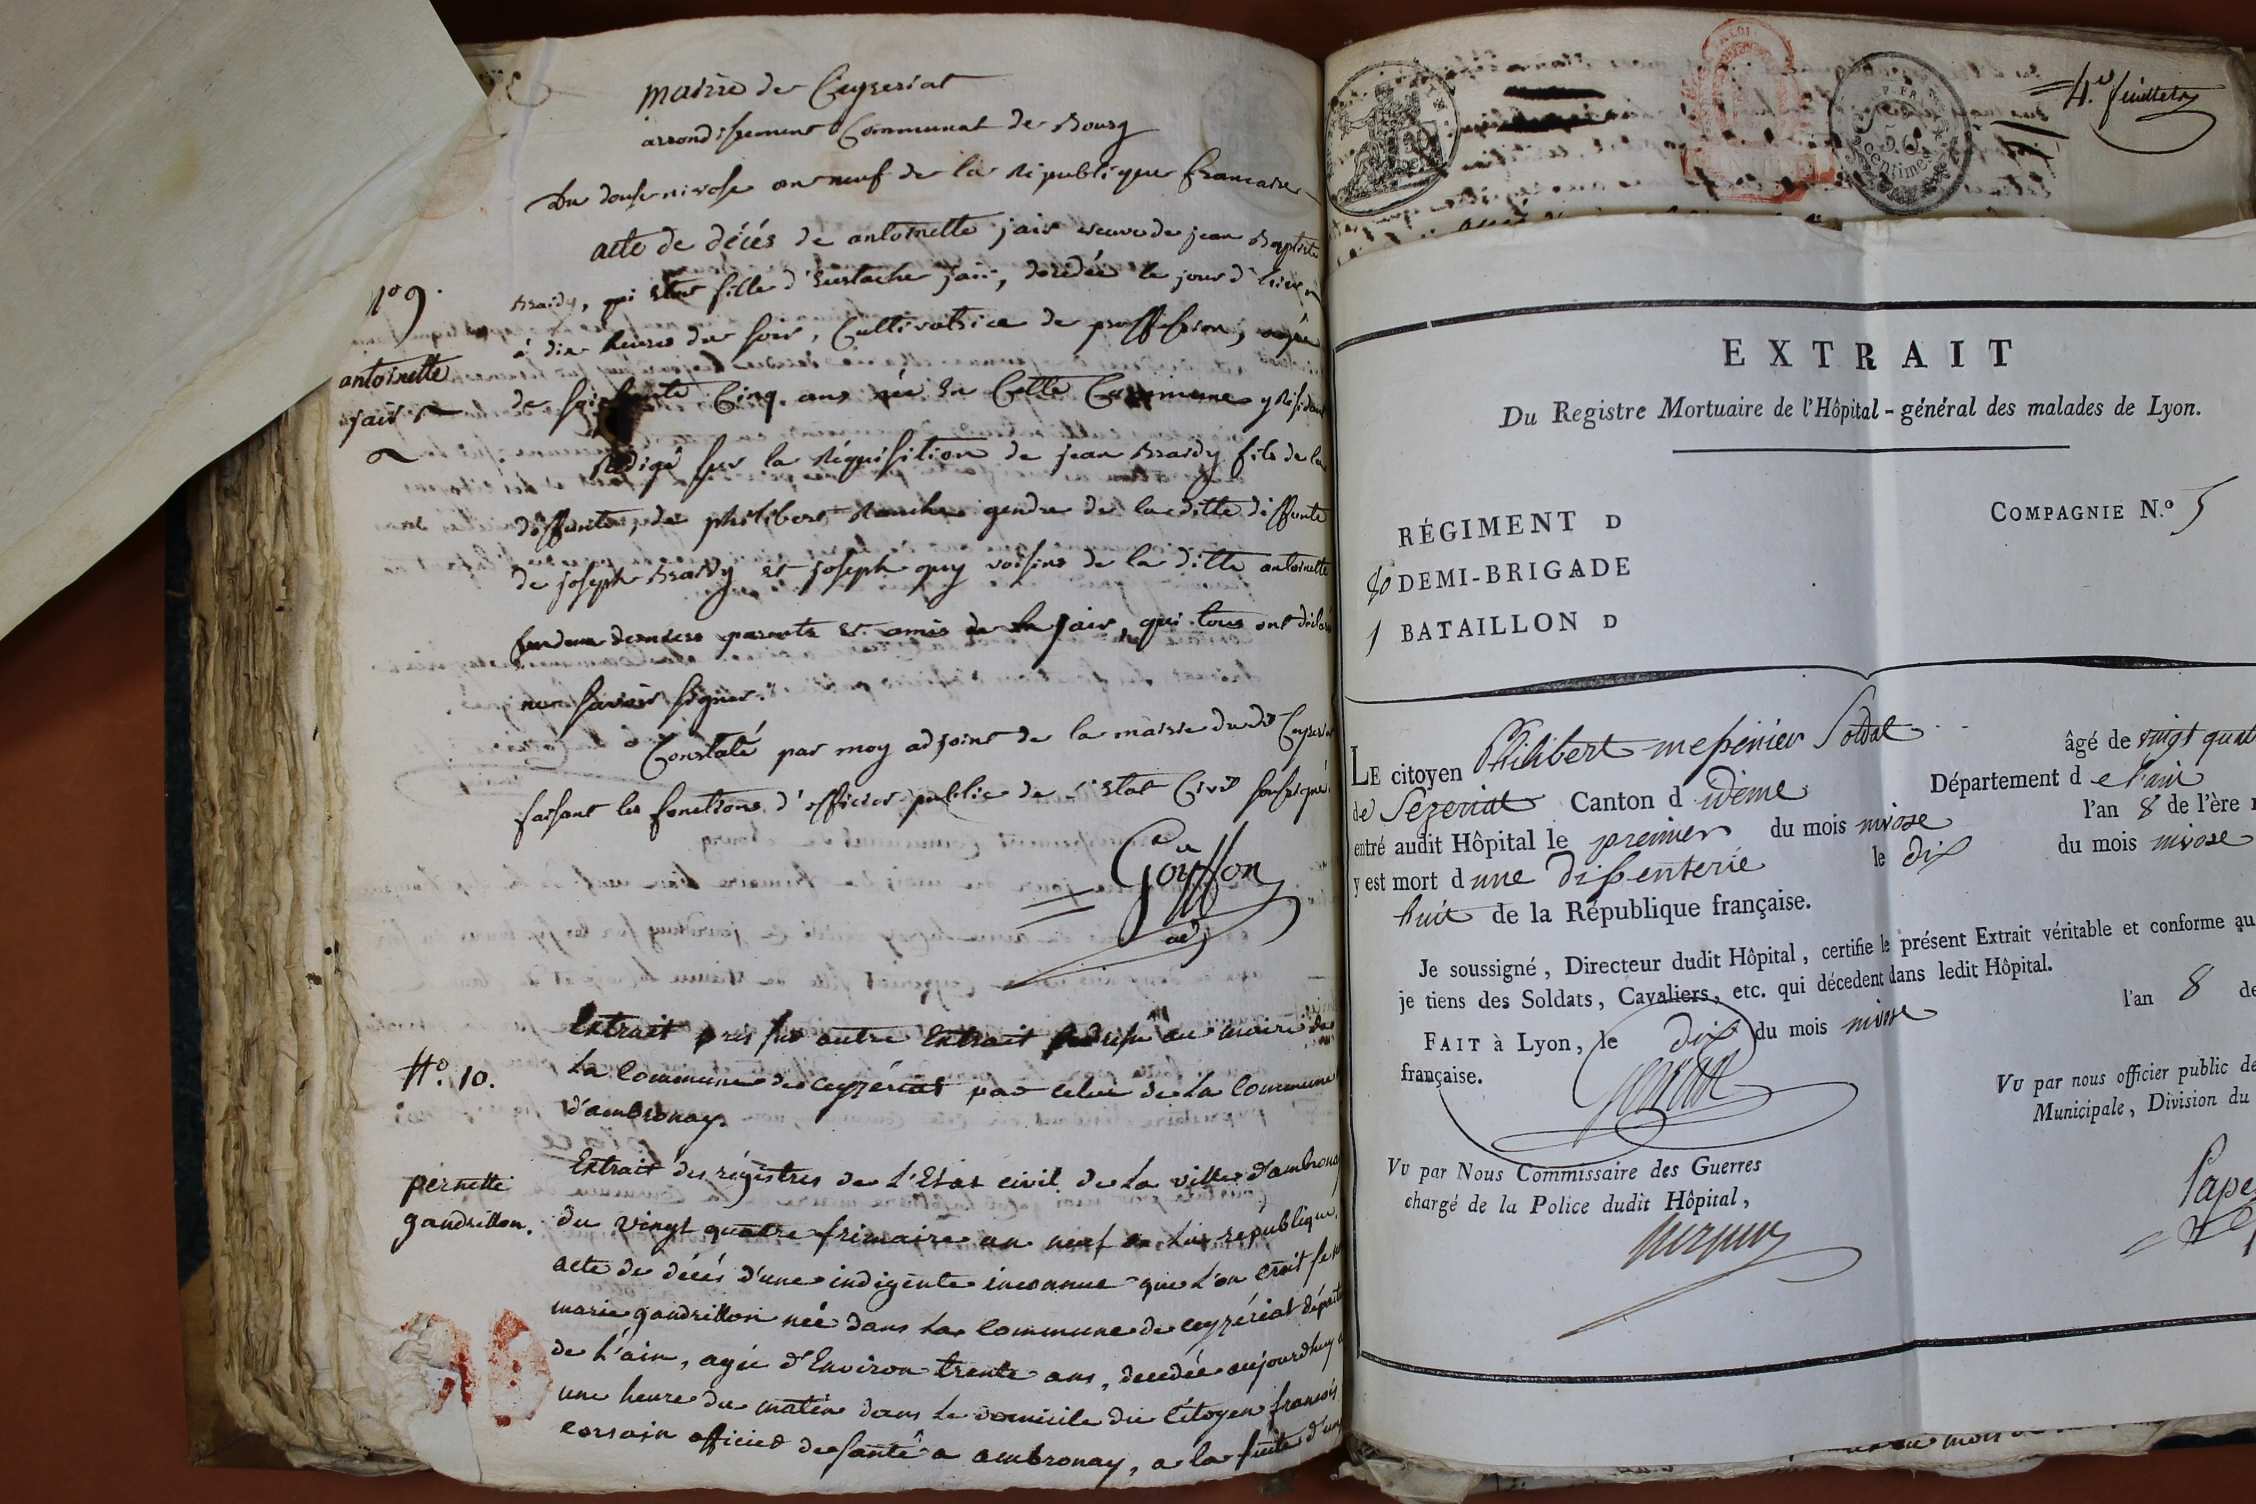 mairie de Ceyzeriat
arrondissement Communal de Bourg
Du douse nivose an neuf de la République francaise
acte de décés de antoinette jair veuve de jean Baptiste
Brardy, qui etoit fille d'Eustache jair, décédée le jour d'hier
à dix heures du soir, Cultivatrice de proffession, agée
de soixante Cinq ans née en Cette Commune y Résidant
N° 9.
antoinette
jair
Rédigé sur la Réquisition de jean Brardy fils de la
deffunte, de philibert gendre de la ditte deffunte
de joseph Brardy et joseph voisins de la ditte antoinette
parents et amis de la jair, qui tous ont déclaré
non savoir signer.
Constaté par moy adjoint de la mairie du dit Ceyzeriat
faisant les fonctions d'officier public de l'Etat Civil soussigné
Goiffon
adj
N°. 10.
pernette
gandrillon.
Extrait pris sur autre Extrait adressé au maire de
La Commune de ceyzériat par celui de La Commune
d'ambronay.
Extrait des régistres de L'Etat civil de La ville d'ambronay
du vingt quatre frimaire an neuf de La république.
acte de décés d'une indigente inconnue que L'on croit se
marie gandrillon née dans La Commune de ceyzériat dépait
de L'ain, agée d'Environ trente ans, decedée aujourdhuy a
une heure du matin dans Le domicile du Citoyen francois
corsain officier de santé a ambronay, a la suite d'un
50
centimes
4.e feuillet
EXTRAIT
Du Registre Mortuaire de l'Hôpital-général des malades de Lyon.
RÉGIMENT D
COMPAGNIE N.° 5
DEMI-BRIGADE
1 BATAILLON D
LE citoyen Philibert messenier Soldat âgé de vingt quat
de Sezeriat Canton d idème Département d e l'ain
entré audit Hôpital le premier du mois nivose l'an 8 de l'ère
y est mort d une dissenterie le dix du mois nivose
huit de la République française.
Je soussigné, Directeur dudit Hôpital, certifie le présent Extrait véritable et conforme au
je tiens des Soldats, Cavaliers, etc. qui décedent dans ledit Hôpital.
FAIT à Lyon, le dix du mois nivose l'an 8 de
française.
VU par nous officier public de
Municipale, Division du
VU par Nous Commissaire des Guerres
chargé de la Police dudit Hôpital,